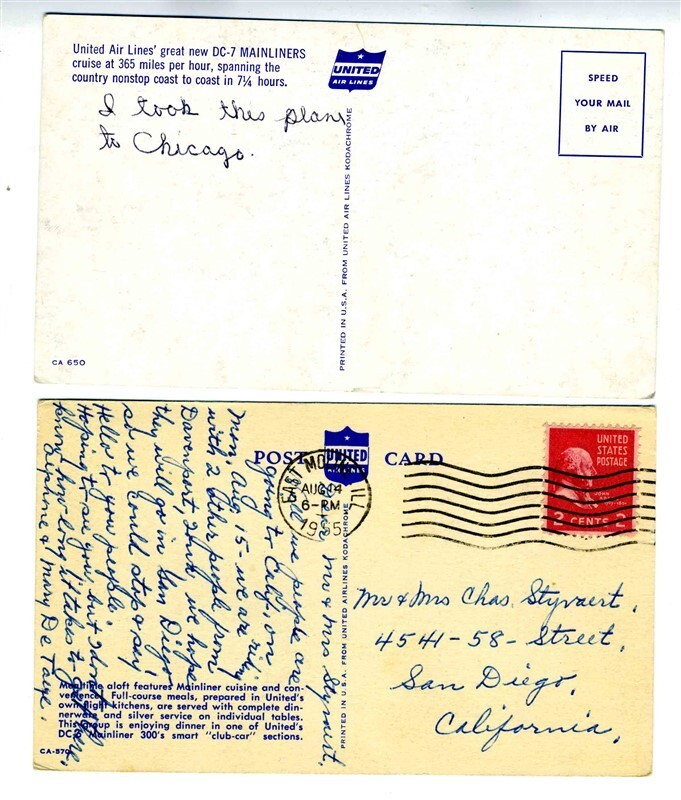 United Air Lines' great new DC-7 MAINLINERS
cruise at 365 miles per hour, spanning the
country nonstop coast to coast in 7¼ hours.
I took this plane
to Chicago.
UNITED
AIR LINES
SPEED
YOUR MAIL
BY AIR
PRINTED IN U.S.A. FROM UNITED AIR LINES KODACHROME
CA 650
POST CARD
UNITED
EAST MOLINE ILL
AUG 14
6-PM
1955
UNITED
STATES
POSTAGE
2 CENTS 2
Mr & Mrs Styvaert,
we people are
going to Calif, on
Mon, Aug, 15- we are
with 2 other people from
Davenport,
we hope
they will go in San Diego
so we could stop & say
Hello to you people.
Hoping to see you, but I don't
know how long it takes to
& Mary De
Mr & Mrs Chas. Styvaert,
4541-58- Street,
San Diego,
California,
PRINTED IN U.S.A. FROM UNITED AIRLINES KODACHROME
Mealtime aloft features Mainliner cuisine and con-
venience. Full-course meals, prepared in United's
own flight kitchens, are served with complete din-
nerware and silver service on individual tables.
This group is enjoying dinner in one of United's
DC-6 Mainliner 300's smart "club-car" sections.
CA-570